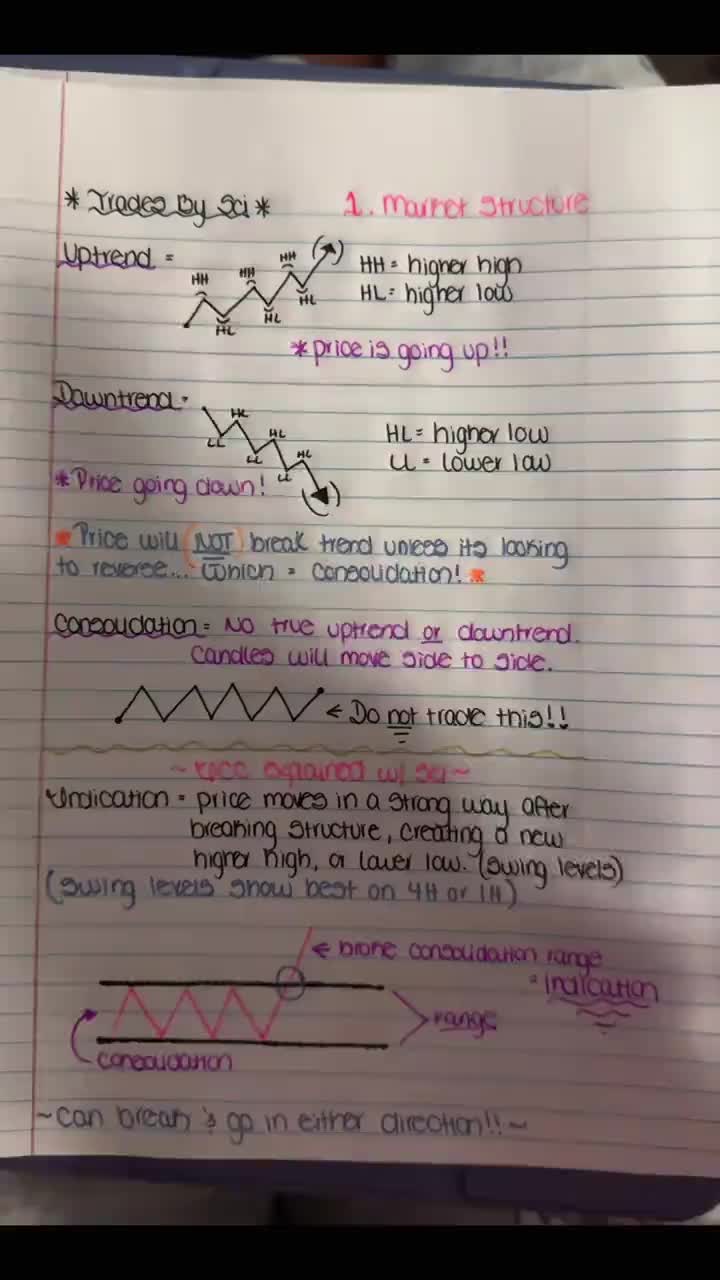 * Trades By Sci *
1. Market Structure
Uptrend =
HH
HH
HH
HL
HL
HL
HH = higher high
HL = higher low
*price is going up!!
Downtrend =
HL
HL
HL
LL
LL
LL
HL = higher low
LL = lower low
*Price going down!
*Price will NOT break trend unless its looking
to reverse... Which = consolidation! *
Consolidation = No true uptrend or downtrend.
Candles will move side to side.
← Do not trade this!!
explained w/ Sci~
Indication = price moves in a strong way after
breaking structure, creating a new
higher high, or lower low. (swing levels)
(swing levels show best on 4H or 1H)
← broke consolidation range
= indication
range
consolidation
~can break & go in either direction!!~